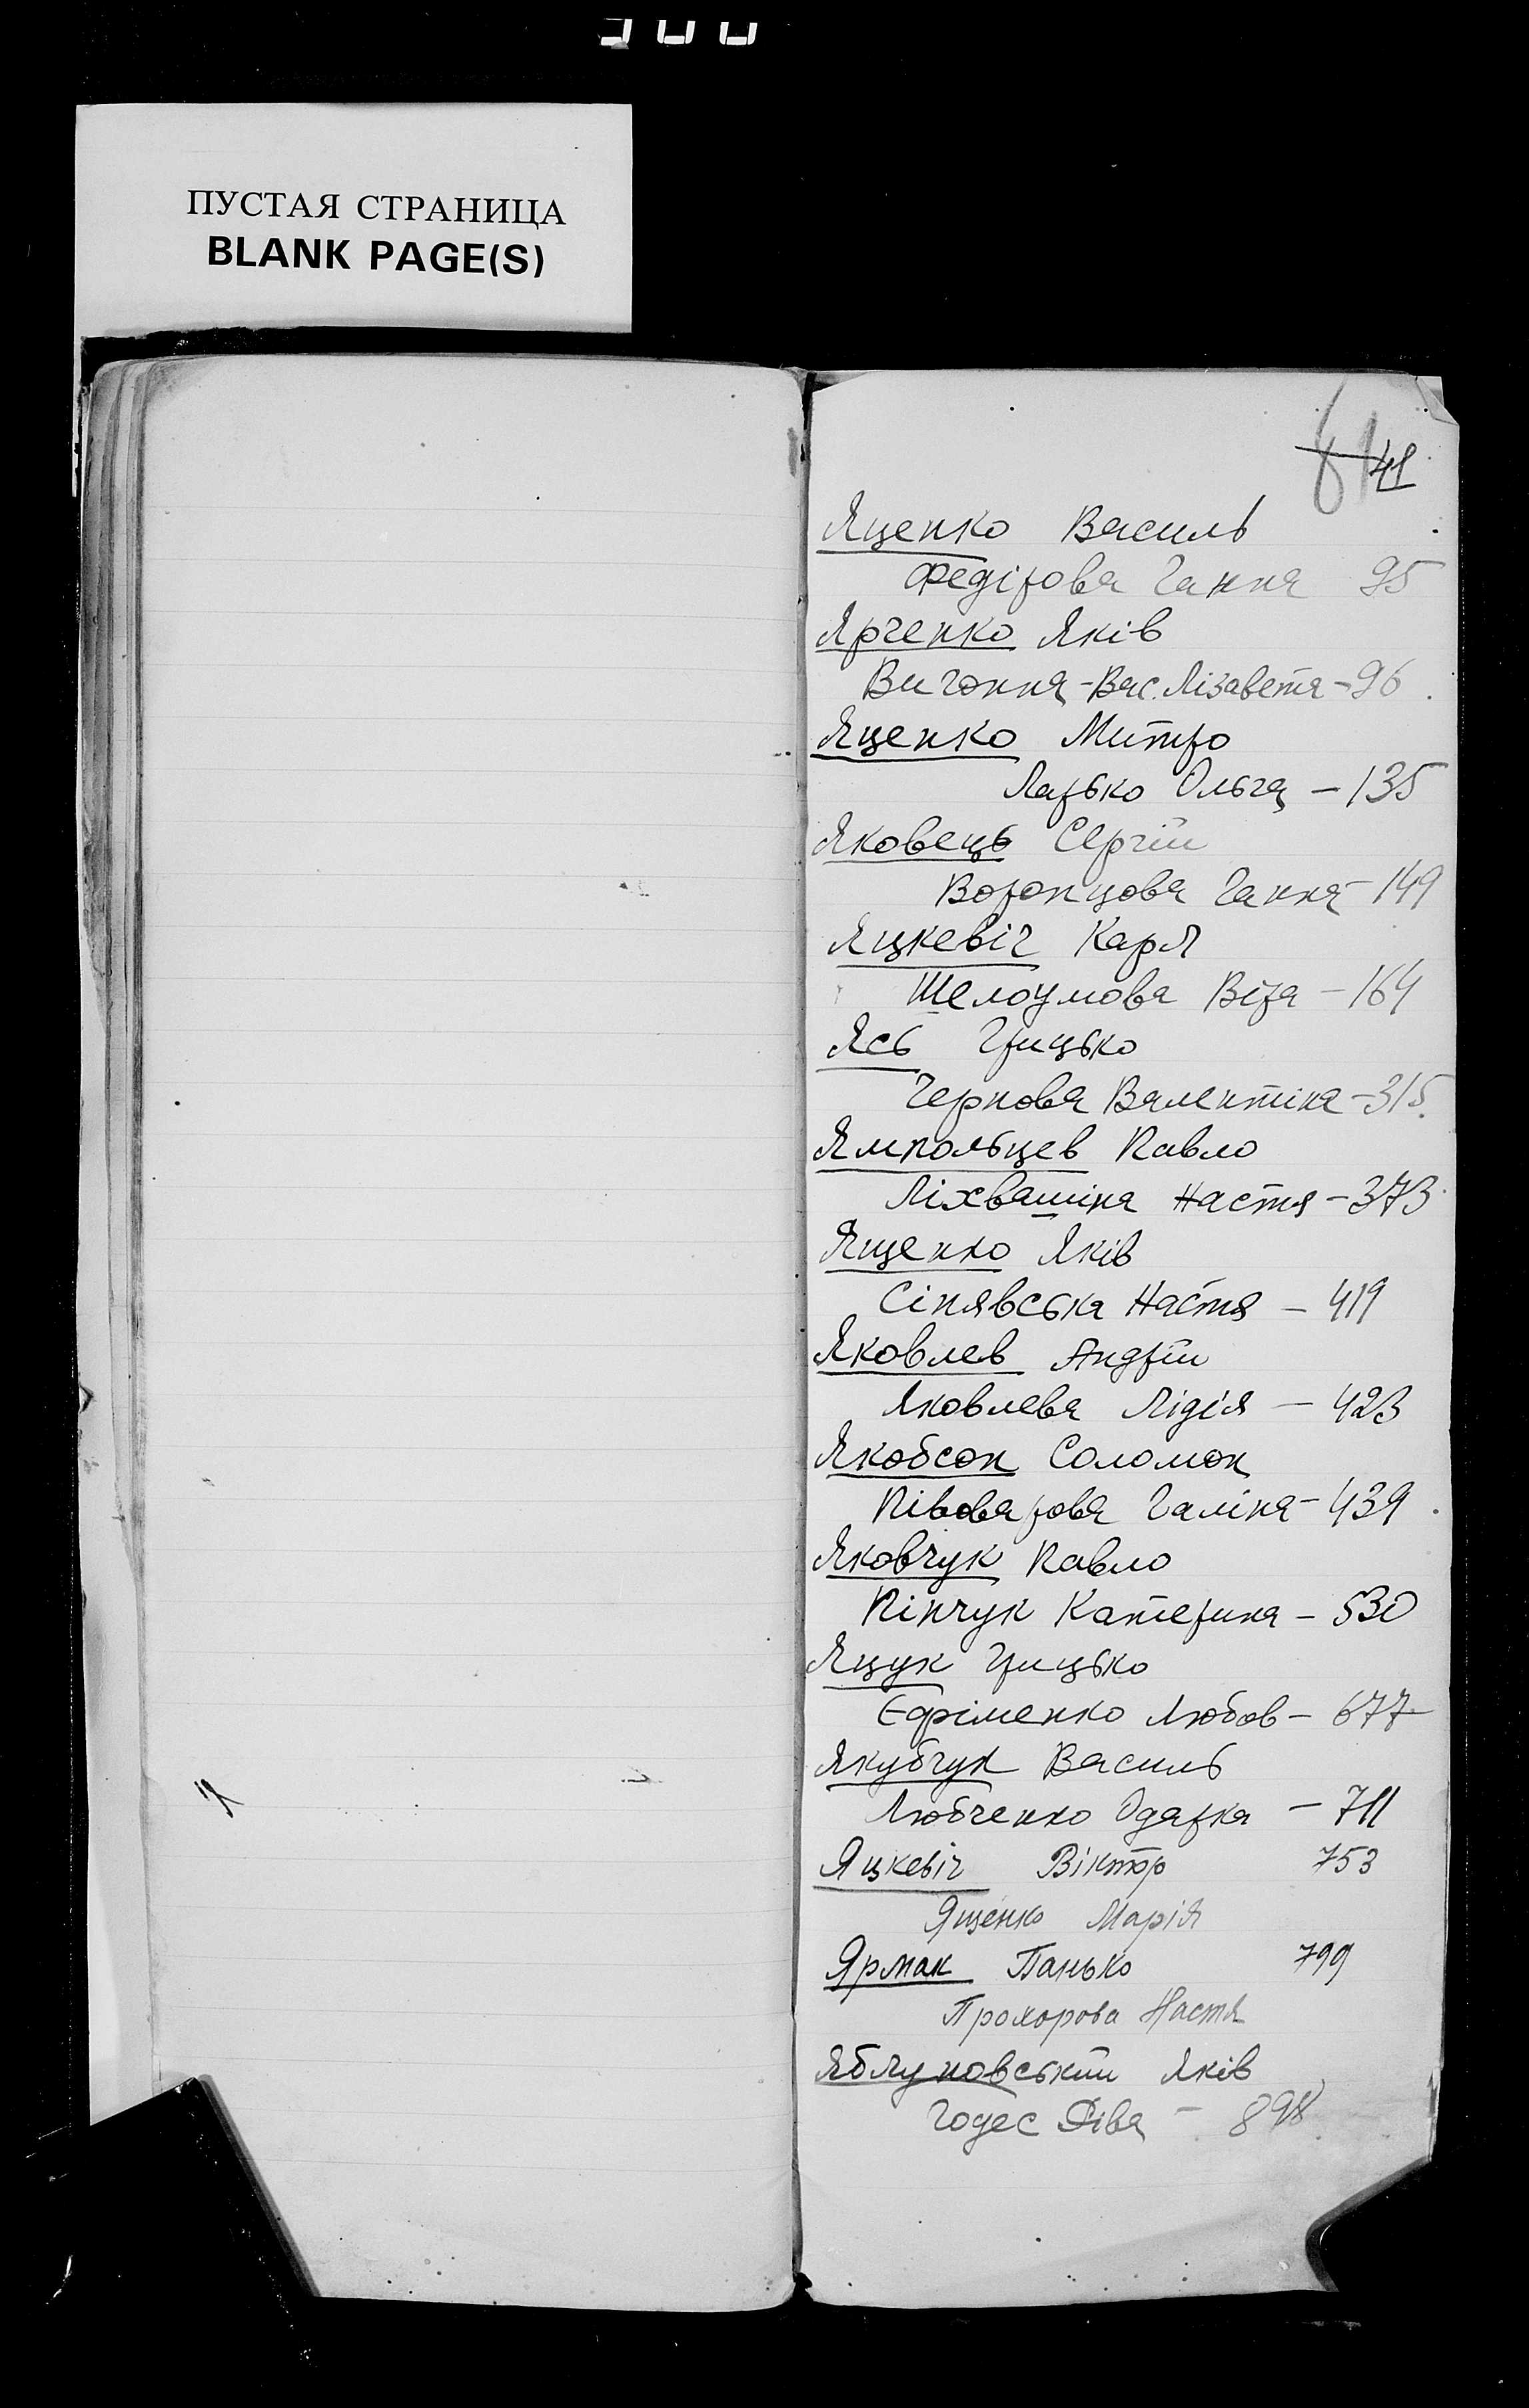 ПУСТАЯ СТРАНИЦА
BLANK PAGE(S)
41
Яценко Василь
Федірова Ганна 95
Ярченко Яків
Вигонна-Вас. Лізавета - 96
Яценко Митро
Ларько Ольга - 135
Яковець Сергій
Воронцова Ганна - 149
Яцкевіч Карл
Шелоумова Віра - 164
Ясь Грицько
Чернова Валентіна - 315
Ямпольцев Павло
Ліхвашіна Настя - 373
Ященко Яків
Сінявська Настя - 419
Яковлев Андрій
Яковлева Лідія - 423
Якобсон Соломон
Півоварова Галіна - 439
Яковчук Павло
Пінчук Катерина - 530
Яцук Грицько
Єфіменко Любов - 677
Якубчук Василь
Любченко Одарка - 711
Яцкевіч Віктор 753
Ященко Марія
Ярмак Панько 799
Прохорова Настя
Яблуновський Яків
Годес Діва - 898